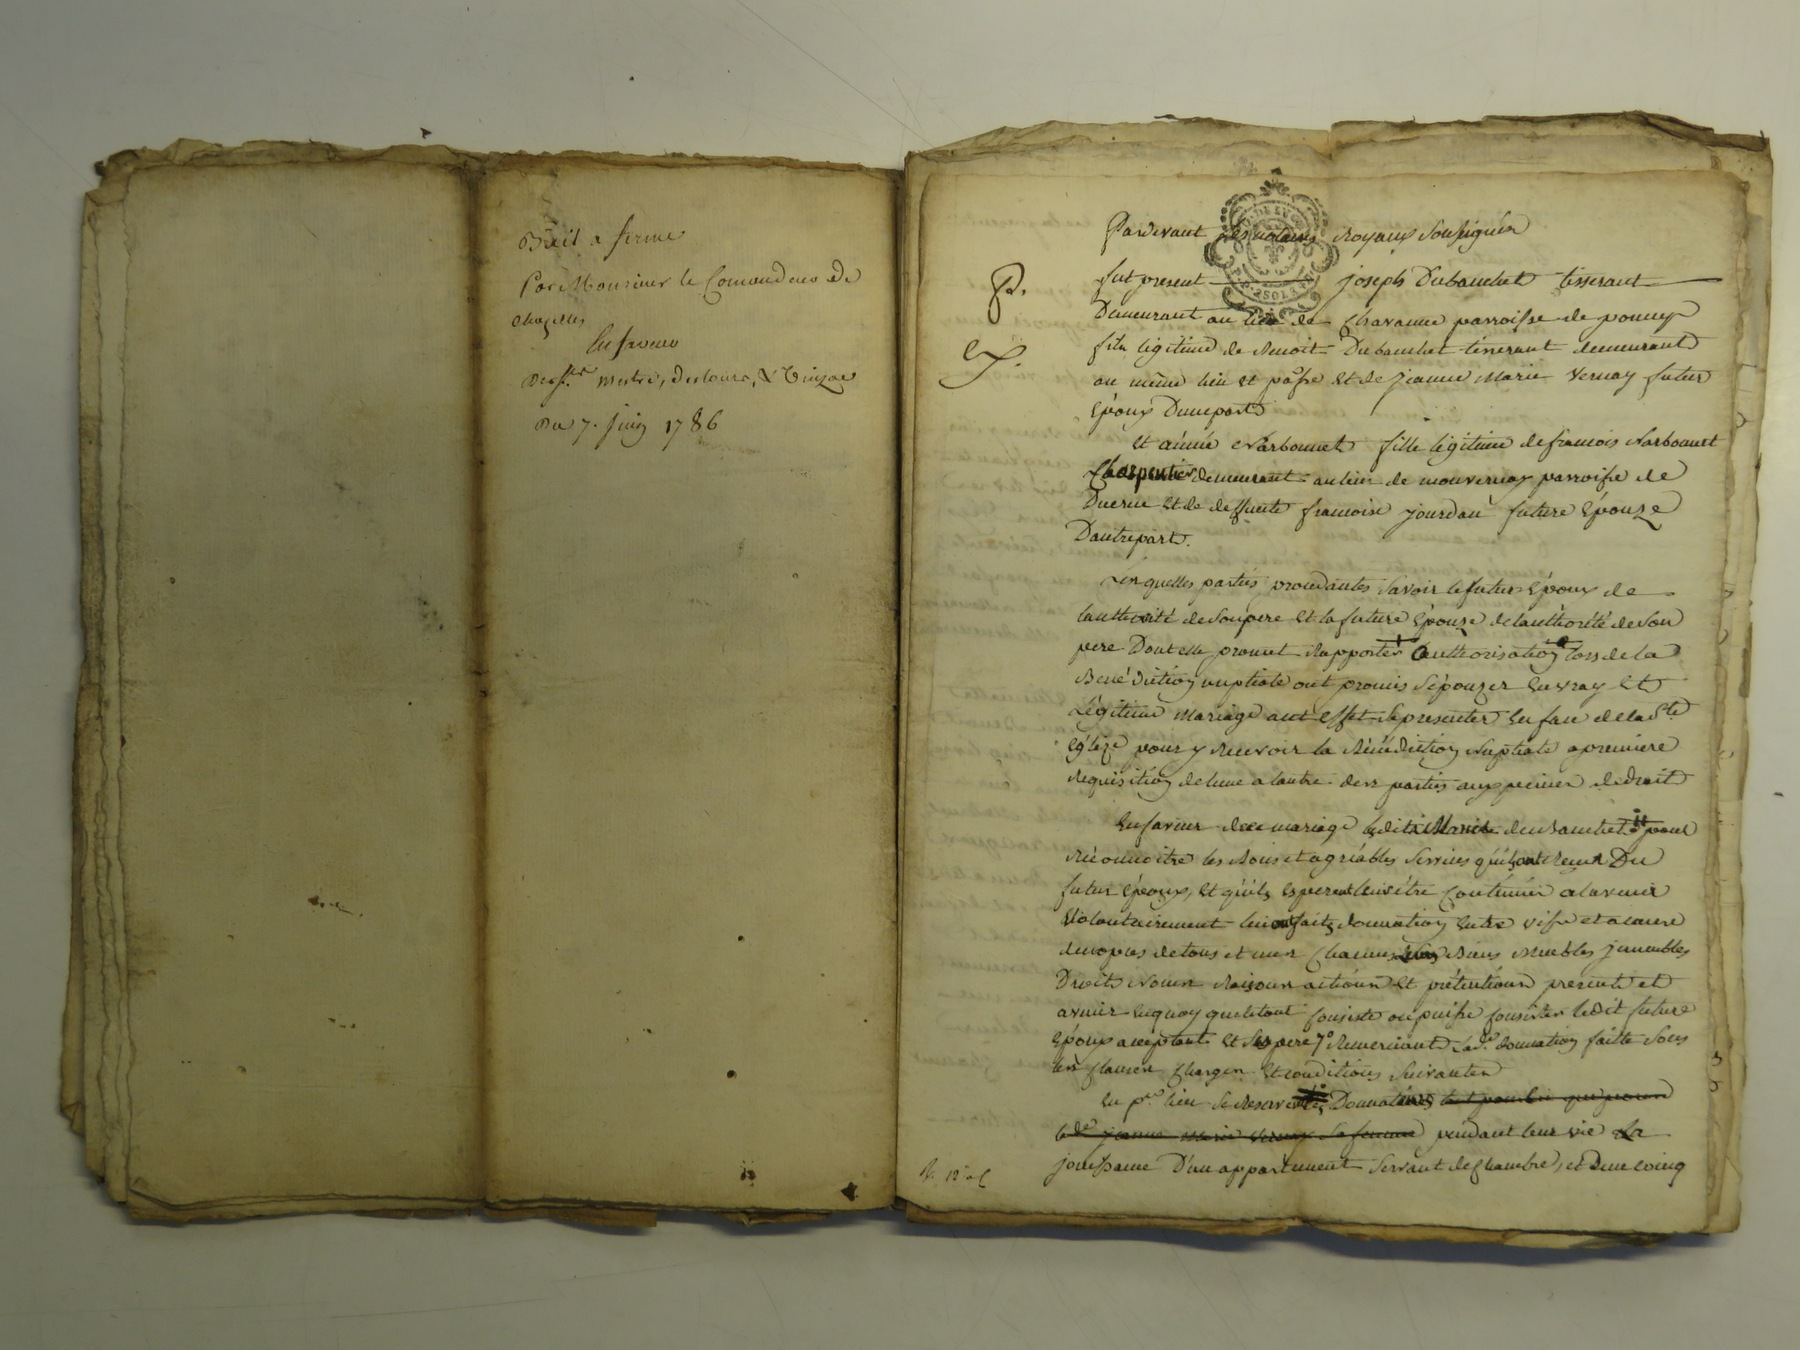 Bail a ferme
Par Monsieur le Comandeur de
Chazelles
En faveur
Des srs. Mestre, Deslours, &
Du 7. juin 1786
Pardevant les notaires Royaux Soussignés
P.
fut present joseph Dubanchet tisserant
Demeurant au lieu de Chavanne parroisse de pomeys
fils legitime de Benoit Dubanchet tisserant demeurant
au même lieu et paSse et de jeanne Marie Vernay futur
Epoux Dunepart
Et aimée Narbonnet fille legitime de francois Narbonnet
Charpentier demeurant au lieu de mouvernay parroisse de
Duerne et de deffunte francoise jourdan future Epouze
Dautrepart.
Lesquelles parties procedantes Savoir le futur Epoux de
lauthorité de Son pere et la future Epouze de lauthorité de Son
pere Dont elle promet Rapporter authorisation lors de la
Benédiction nuptiale ont promis Sépouzer En vray Et
Légitime Mariage a cet effet Se presenter En face de la Ste
Eglize pour y Recevoir la Bénédiction Nuptiale a premiere
Requisition de lune a lautre des parties aux peines de droit
En faveur de ce mariage ledit Dubanchet pour
Réconnoitre les Bons et agréables Services quils ont Receus Du
futur Epoux, Et quils Esperent leur être Continués a lavenir
Volontairement lui ont fait donnation Entre vifs et a cause
de nopces de tous et uns Chacuns Leurs Biens Meubles jmmeubles
Droits Noms Raisons actions Et prétentions presents et
avenir En quoy que le tout Consiste ou puisse Consister ledit futur
Epoux acceptant Et Ses pere Remerciant Lade. donnation faitte Sous
les Clauses Charges Et conditions Suivantes
En per. lieu Se Reservent Donnateurs tant pour lui que pour
lade. jeanne Marie Vernay Sa femme pendant leur vie La
jouissance D'un appartement Servant de Chambre, et D'une